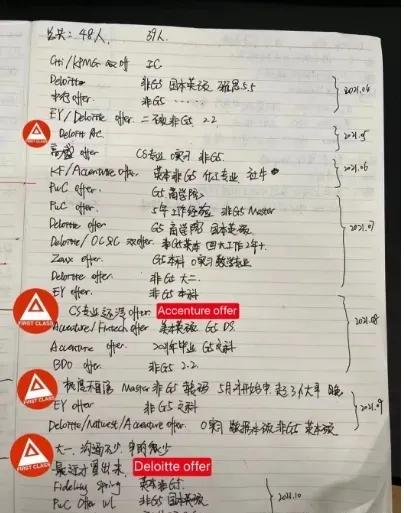 总共: 48人, 39人.
Citi/KPMG offer IC
Deloitte 非G5 国本英硕 雅思5.5
offer. 非G5 ......
2021.04
EY/Deloitte offer. 二硕 非G5 2.2
FIRST CLASS
Deloitte AC.
2021.05
高盛 offer CS专业 实习 非G5.
KF/Accenture offer. 英本非G5
2021.06
PwC offer. G5 商学院
PwC offer. 5年工作经验 非G5 Master
Deloitte offer G5 商学院 国本英硕
2021.07
Deloitte/OC&C 双offer 非G5英本 四大工作2年+.
offer. G5本科 0实习 数学专业
Deloitte offer. 非G5 大二
EY offer. 非G5 本科
FIRST CLASS
CS专业 offer Accenture offer
Accenture/Fintech offer 英本英硕 G5 DS.
2021.08
Accenture offer. 2021年毕业 G5文科
BDO offer. 非G5 2.2
FIRST CLASS
Master 非G5 5月开始申
EY offer 非G5 文科
2021.09
Deloitte/Natwest/Accenture offer. 0实习 数据本硕 非G5 英本硕
FIRST CLASS
大一. 沟通不少, 申的很少
最近才冒出来. Deloitte offer
Fidelity Spring 英本非G5.
PwC offer 非G5 国本英硕
2021.10